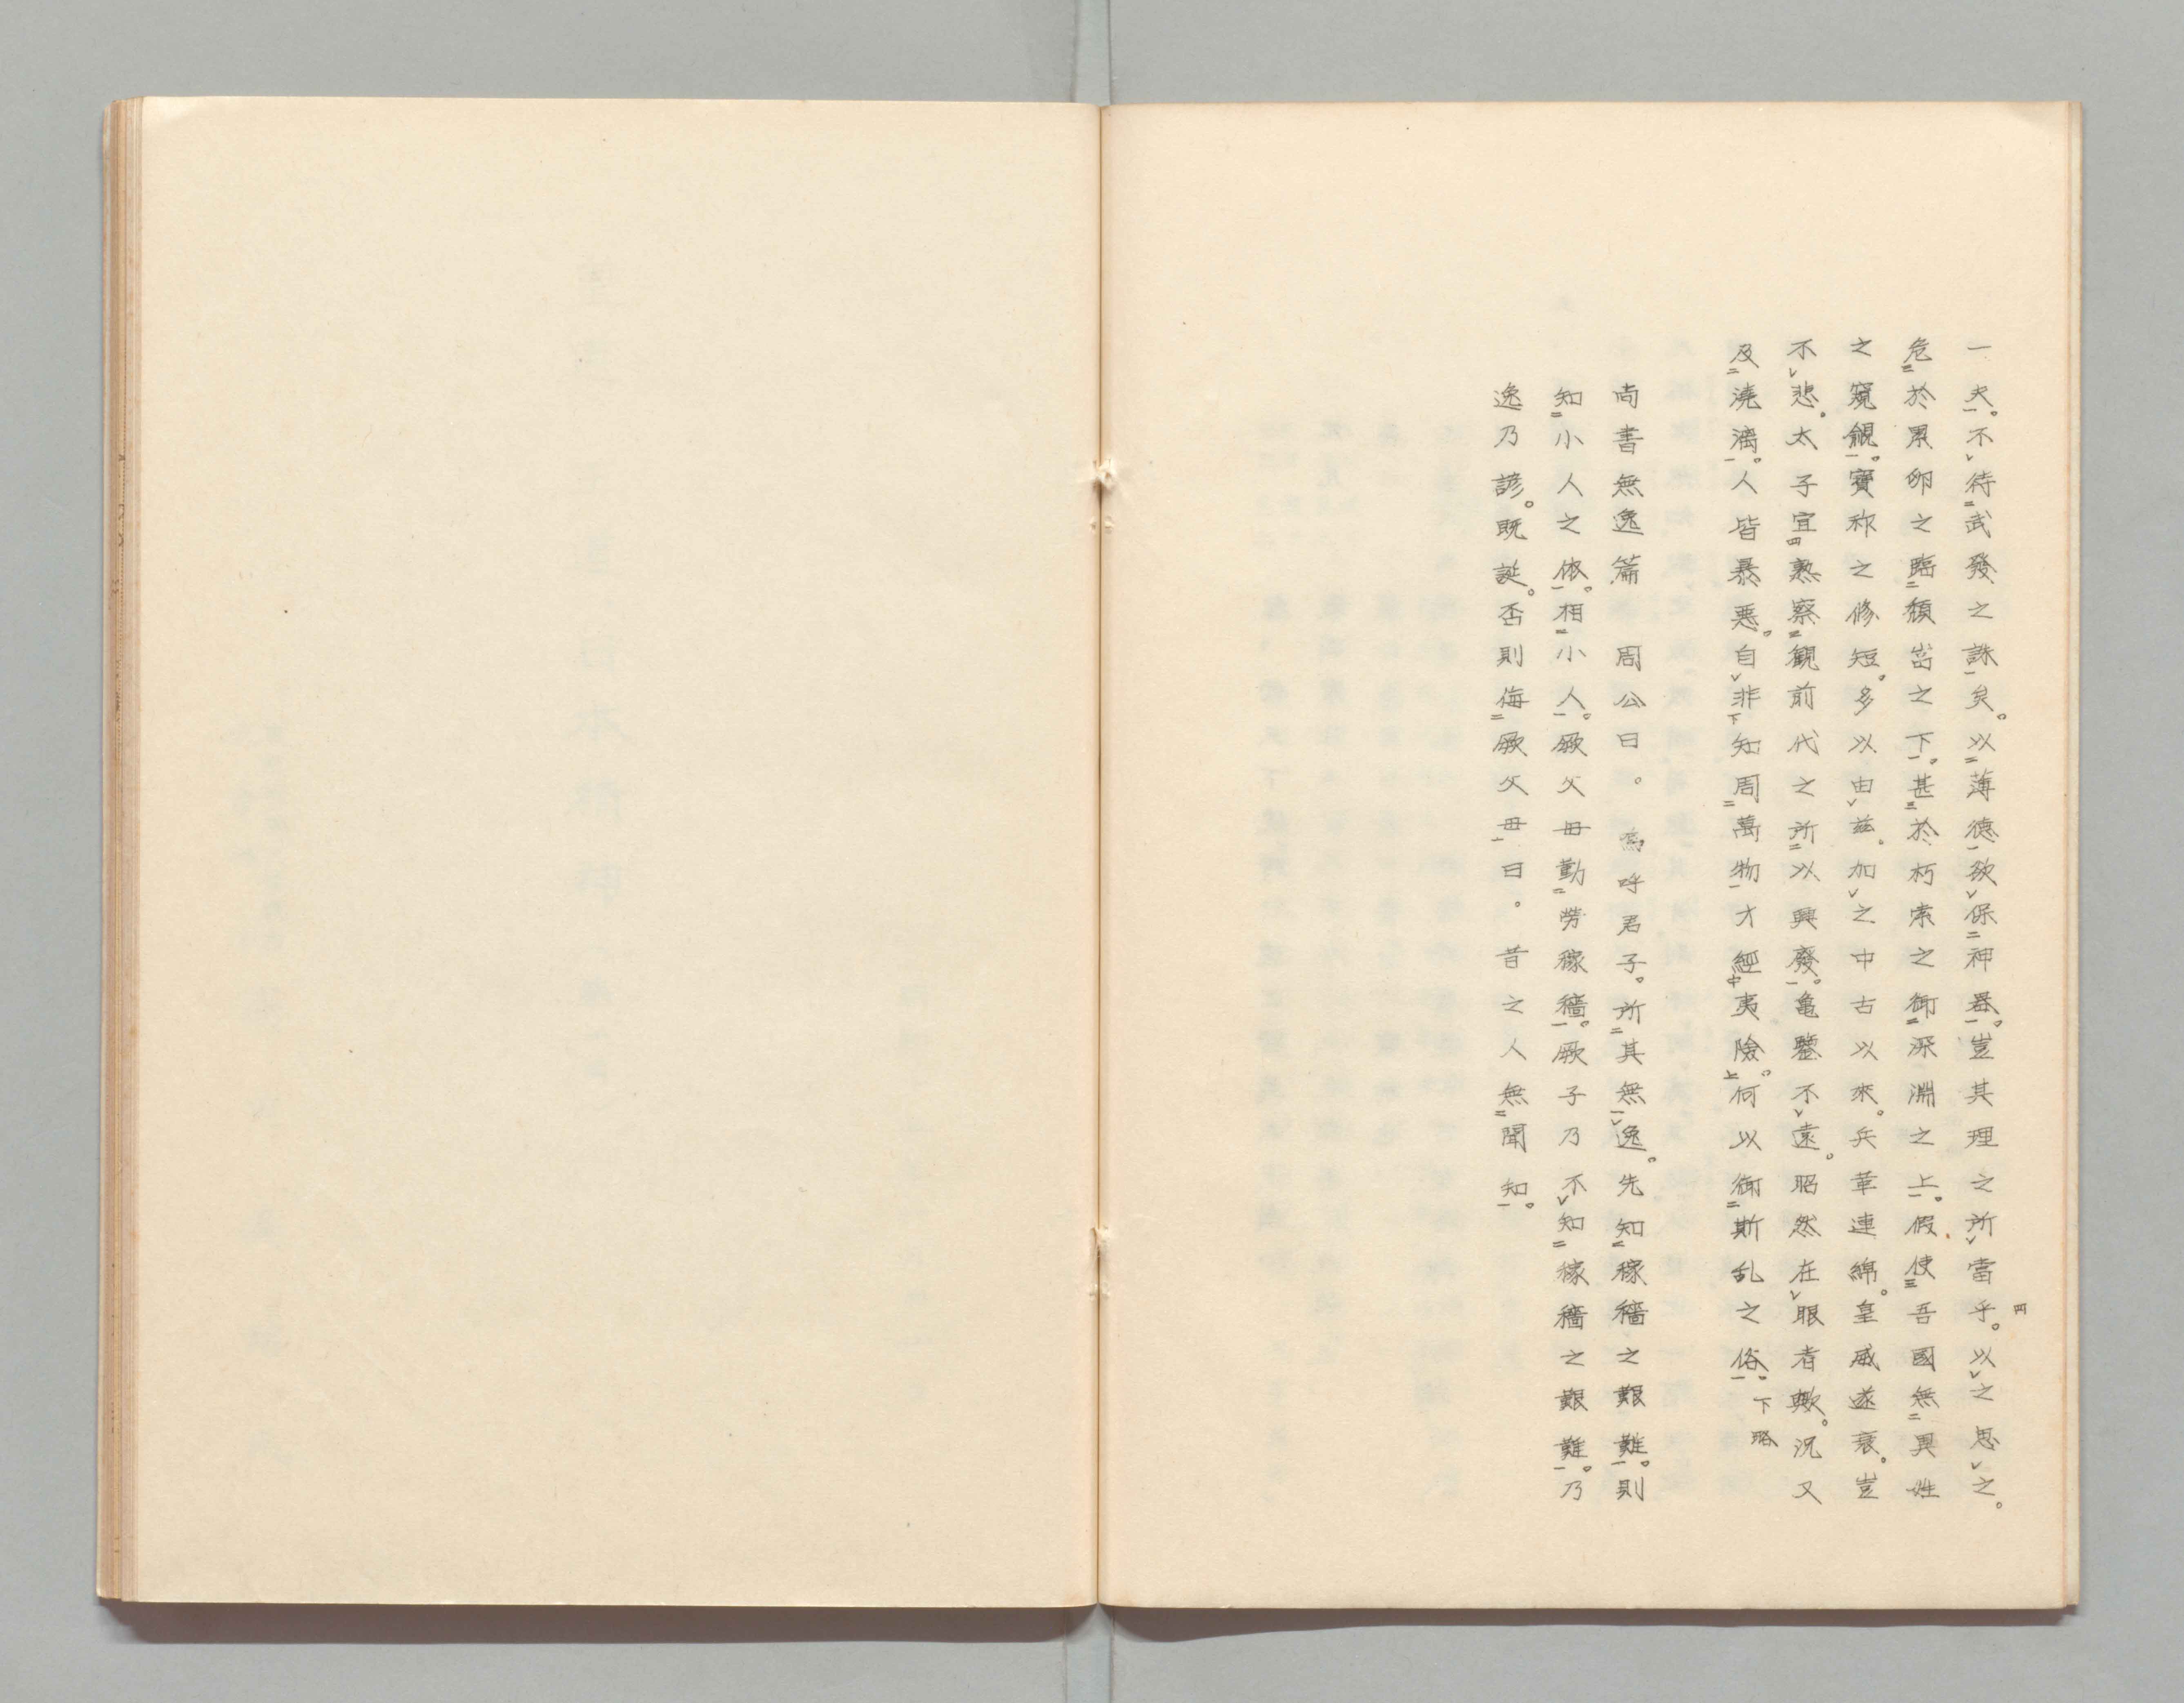 一夫。不待武發之誅矣。以薄德欲保神器。豈其理之所當乎。以之思之。
危於累卵之臨頽嵓之下。甚於朽索之御深淵之上。假使吾國無異姓
之窺覦。寶祚之修短。多以由茲。加之中古以來。兵革連綿。皇威遂衰。豈
不悲。太子宜熟察觀前代之所以興廢。亀鑒不遠。昭然在眼者歟。況又
及澆漓。人皆暴惡。自非知周萬物才經夷險。何以御斯乱之俗。下略
尚書無逸篇 周公曰。嗚呼君子。所其無逸。先知稼穡之艱難。則
知小人之依。相小人。厥父母勤勞稼穡。厥子乃不知稼穡之艱難。乃
逸乃諺。既誕。否則侮厥父母曰。昔之人無聞知。